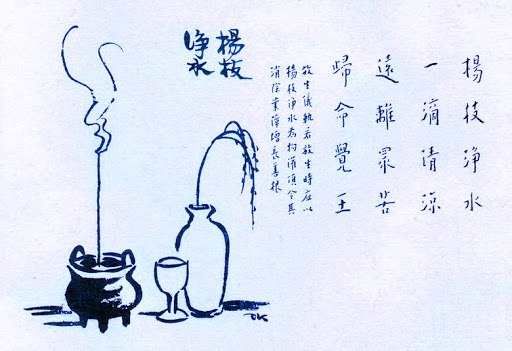 楊枝淨水
一滴清涼
遠離眾苦
歸命覺王
放生儀軌若放生時應以
楊枝淨水為物灌頂令其
消除業障增長善根
楊枝
淨水